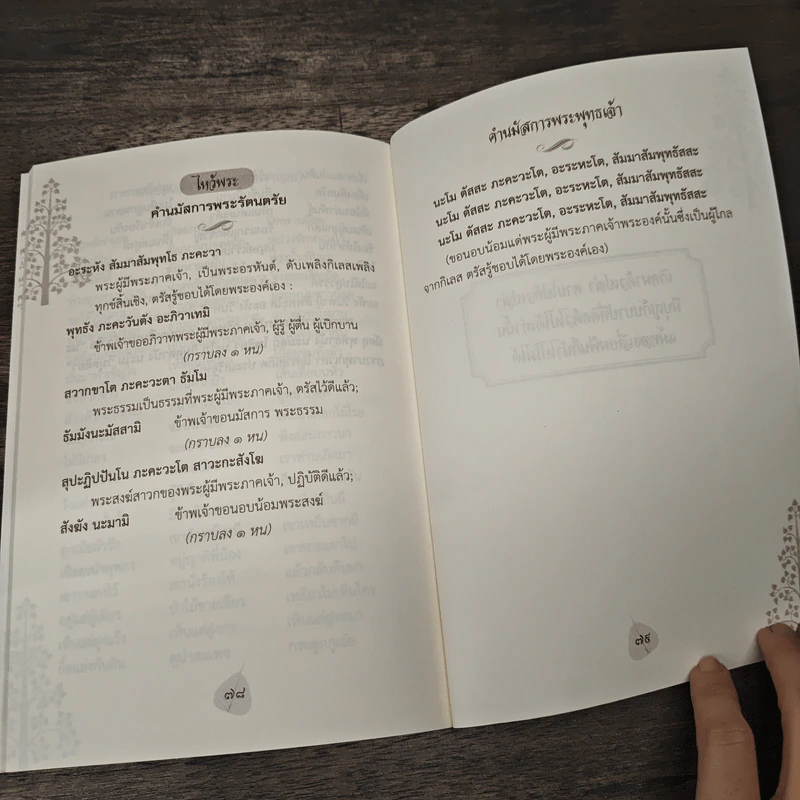 ไหว้พระ
คำนมัสการพระรัตนตรัย
อะระหัง สัมมาสัมพุทโธ ภะคะวา
พระผู้มีพระภาคเจ้า, เป็นพระอรหันต์, ดับเพลิงกิเลสเพลิง
ทุกข์สิ้นเชิง, ตรัสรู้ชอบได้โดยพระองค์เอง :
พุทธัง ภะคะวันตัง อะภิวาเทมิ
ข้าพเจ้าขออภิวาทพระผู้มีพระภาคเจ้า, ผู้รู้ ผู้ตื่น ผู้เบิกบาน
(กราบลง ๑ หน)
สวากขาโต ภะคะวะตา ธัมโม
พระธรรมเป็นธรรมที่พระผู้มีพระภาคเจ้า, ตรัสไว้ดีแล้ว;
ธัมมังนะมัสสามิ ข้าพเจ้าขอนมัสการ พระธรรม
(กราบลง ๑ หน)
สุปะฏิปปันโน ภะคะวะโต สาวะกะสังโฆ
พระสงฆ์สาวกของพระผู้มีพระภาคเจ้า, ปฏิบัติดีแล้ว;
สังฆัง นะมามิ ข้าพเจ้าขอนอบน้อมพระสงฆ์
(กราบลง ๑ หน)
๗๘
คำนมัสการพระพุทธเจ้า
นะโม ตัสสะ ภะคะวะโต, อะระหะโต, สัมมาสัมพุทธัสสะ
นะโม ตัสสะ ภะคะวะโต, อะระหะโต, สัมมาสัมพุทธัสสะ
นะโม ตัสสะ ภะคะวะโต, อะระหะโต, สัมมาสัมพุทธัสสะ
(ขอนอบน้อมแด่พระผู้มีพระภาคเจ้าพระองค์นั้นซึ่งเป็นผู้ไกล
จากกิเลส ตรัสรู้ชอบได้โดยพระองค์เอง)
๗๙